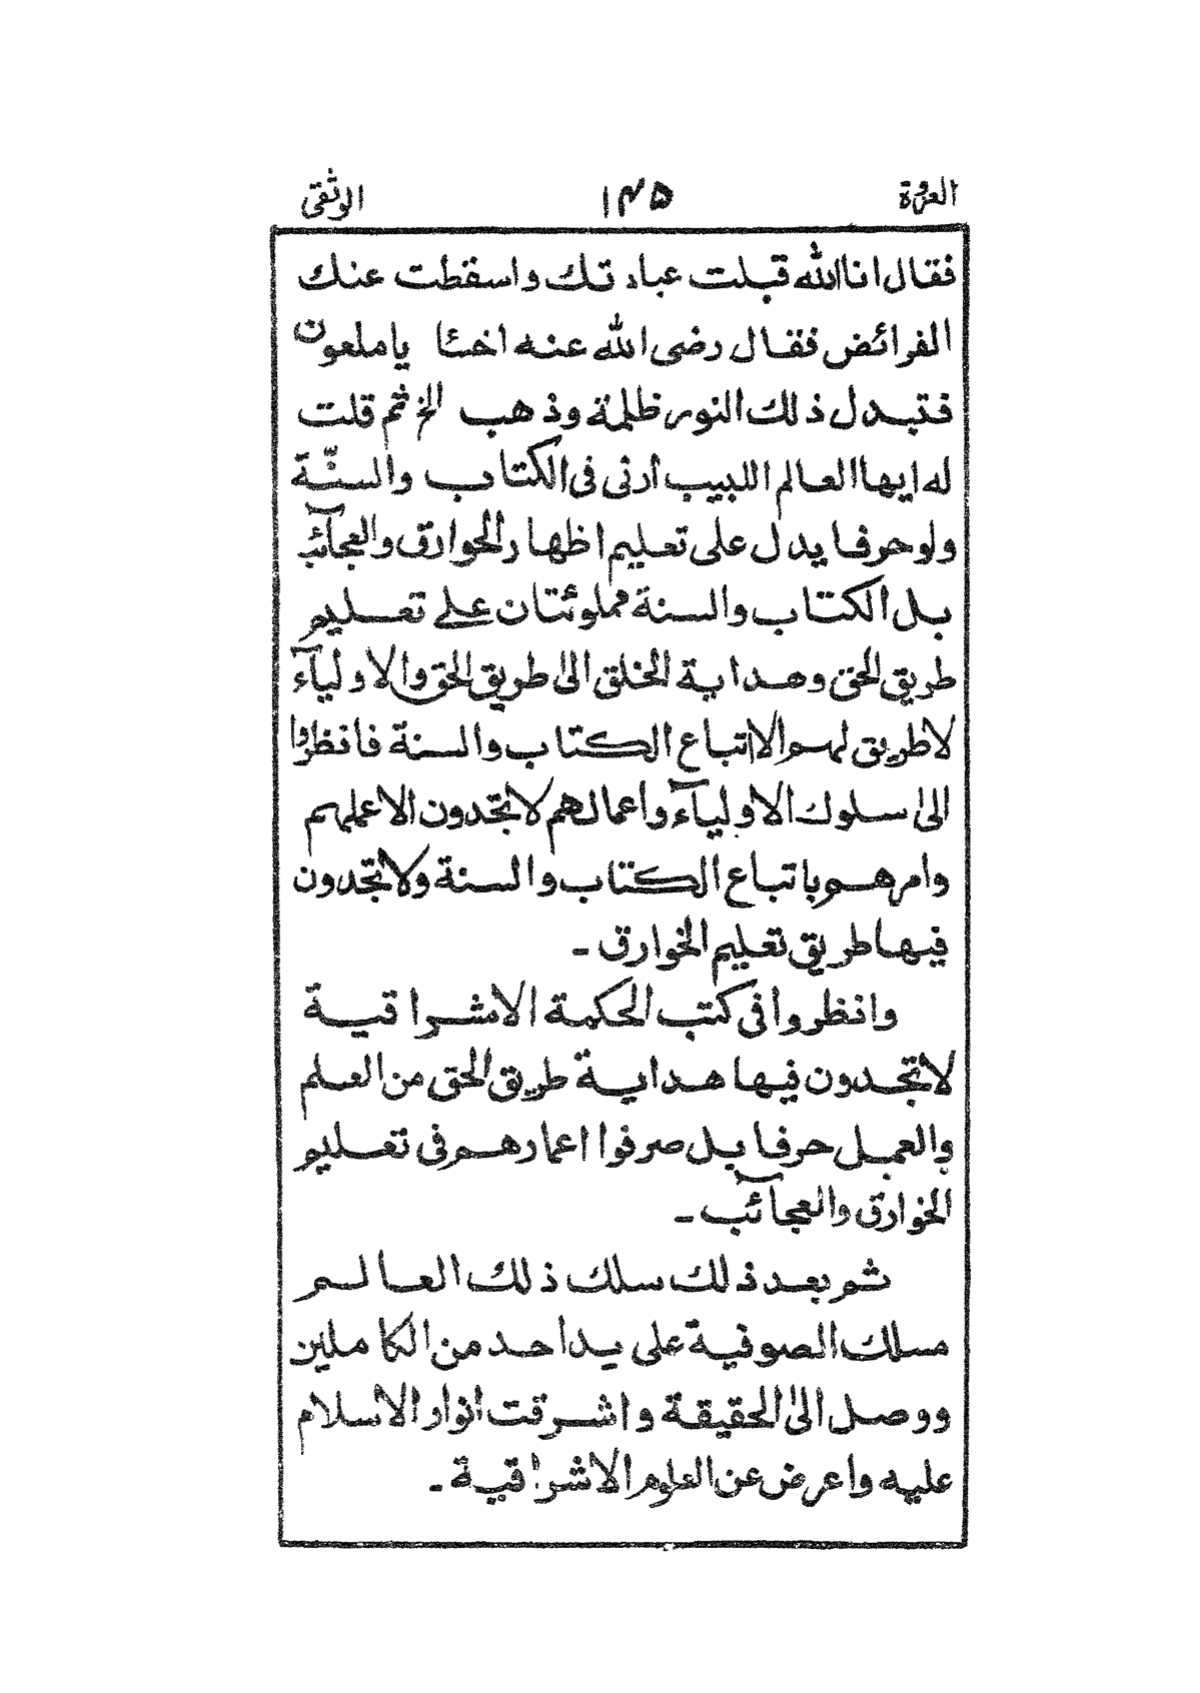 العروة ١٣٥ الوثقى
فقال انا الله قبلت عبادتك واسقطت عنك
الفرائض فقال رضى الله عنه اخسئا ياملعون
فتبدل ذلك النور ظلمة وذهب الخ ثم قلت
له ايها العالم اللبيب أرنى فى الكتاب والسنّة
ولو حرفا يدل على تعليم اظهار الخوارق والعجآئب
بل الكتاب والسنة مملوئتان على تعليم
طريق الحق وهداية الخلق الى طريق الحق والاوليآء
لا طريق لهم الا اتباع الكتاب والسنة فانظروا
الى سلوك الاوليآء واعمالهم لا تجدون الا عملهم
وامرهم باتباع الكتاب والسنة ولا تجدون
فيها طريق تعليم الخوارق ۔
وانظروا فى كتب الحكمة الاشراقية
لا تجدون فيها هداية طريق الحق من العلم
والعمل حرفا بل صرفوا اعمارهم فى تعليم
الخوارق والعجآئب ۔
ثم بعد ذلك سلك ذلك العالم
مسلك الصوفية على يد احد من الكاملين
ووصل الى الحقيقة واشرقت انوار الاسلام
عليه واعرض عن العلوم الاشراقية ۔